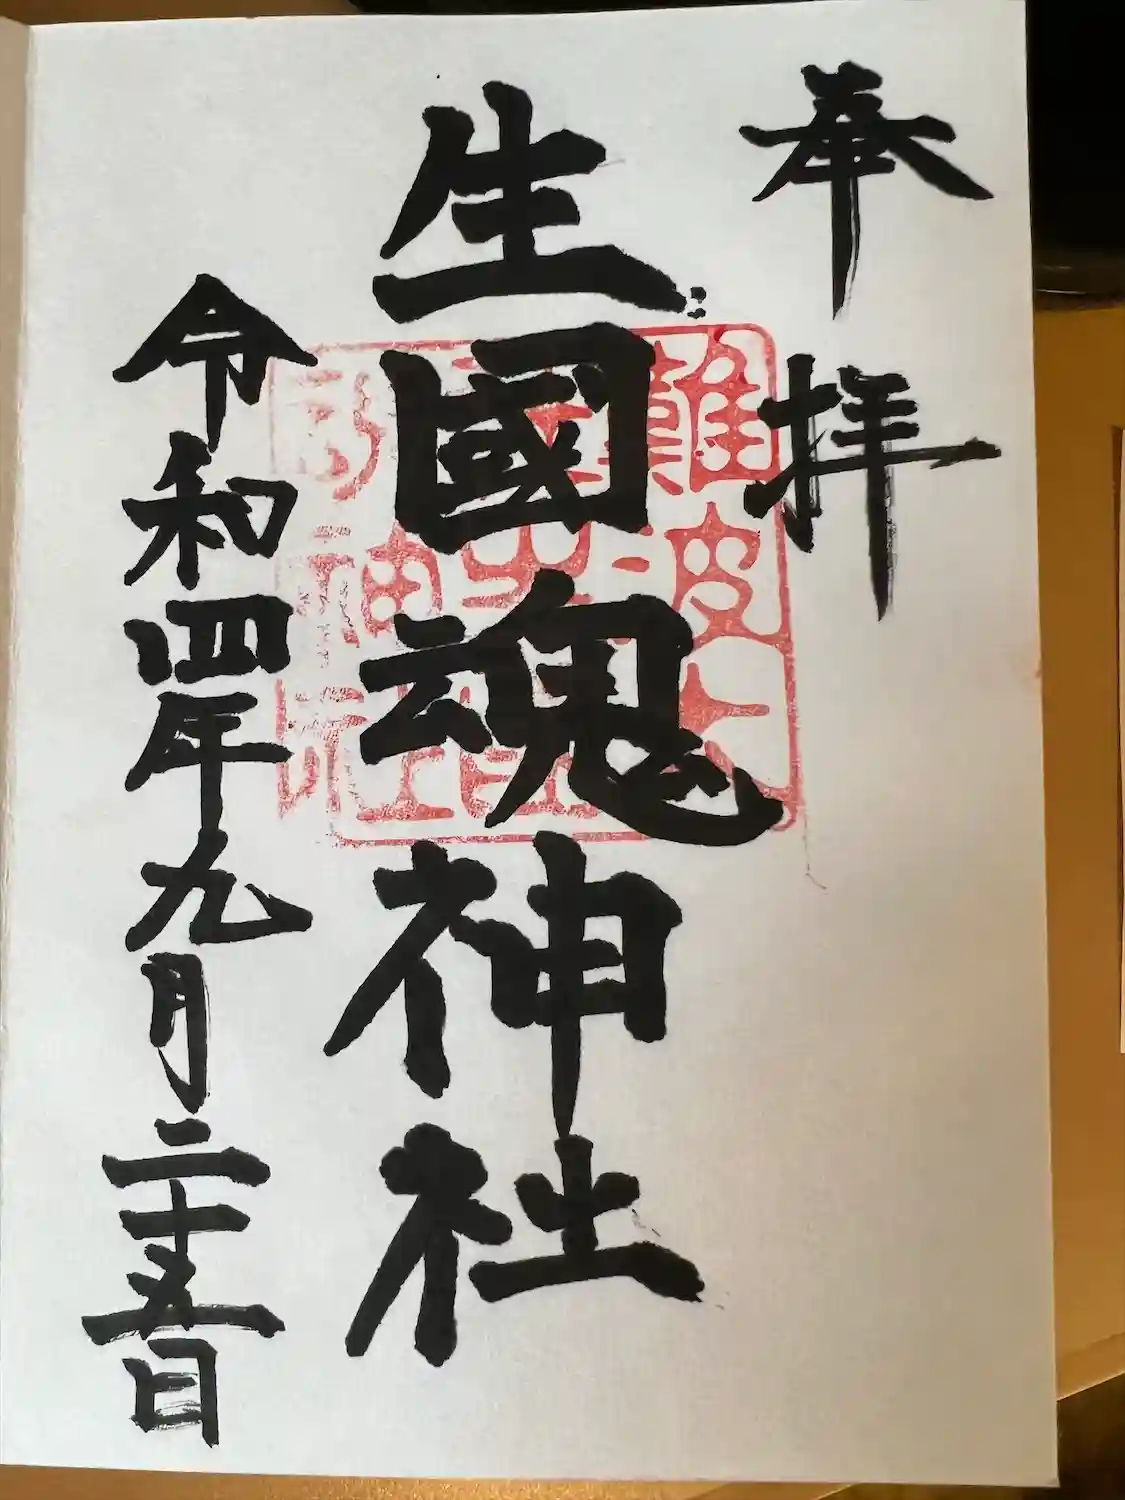 奉拝
生國魂神社
令和四年九月二十五日
難波大